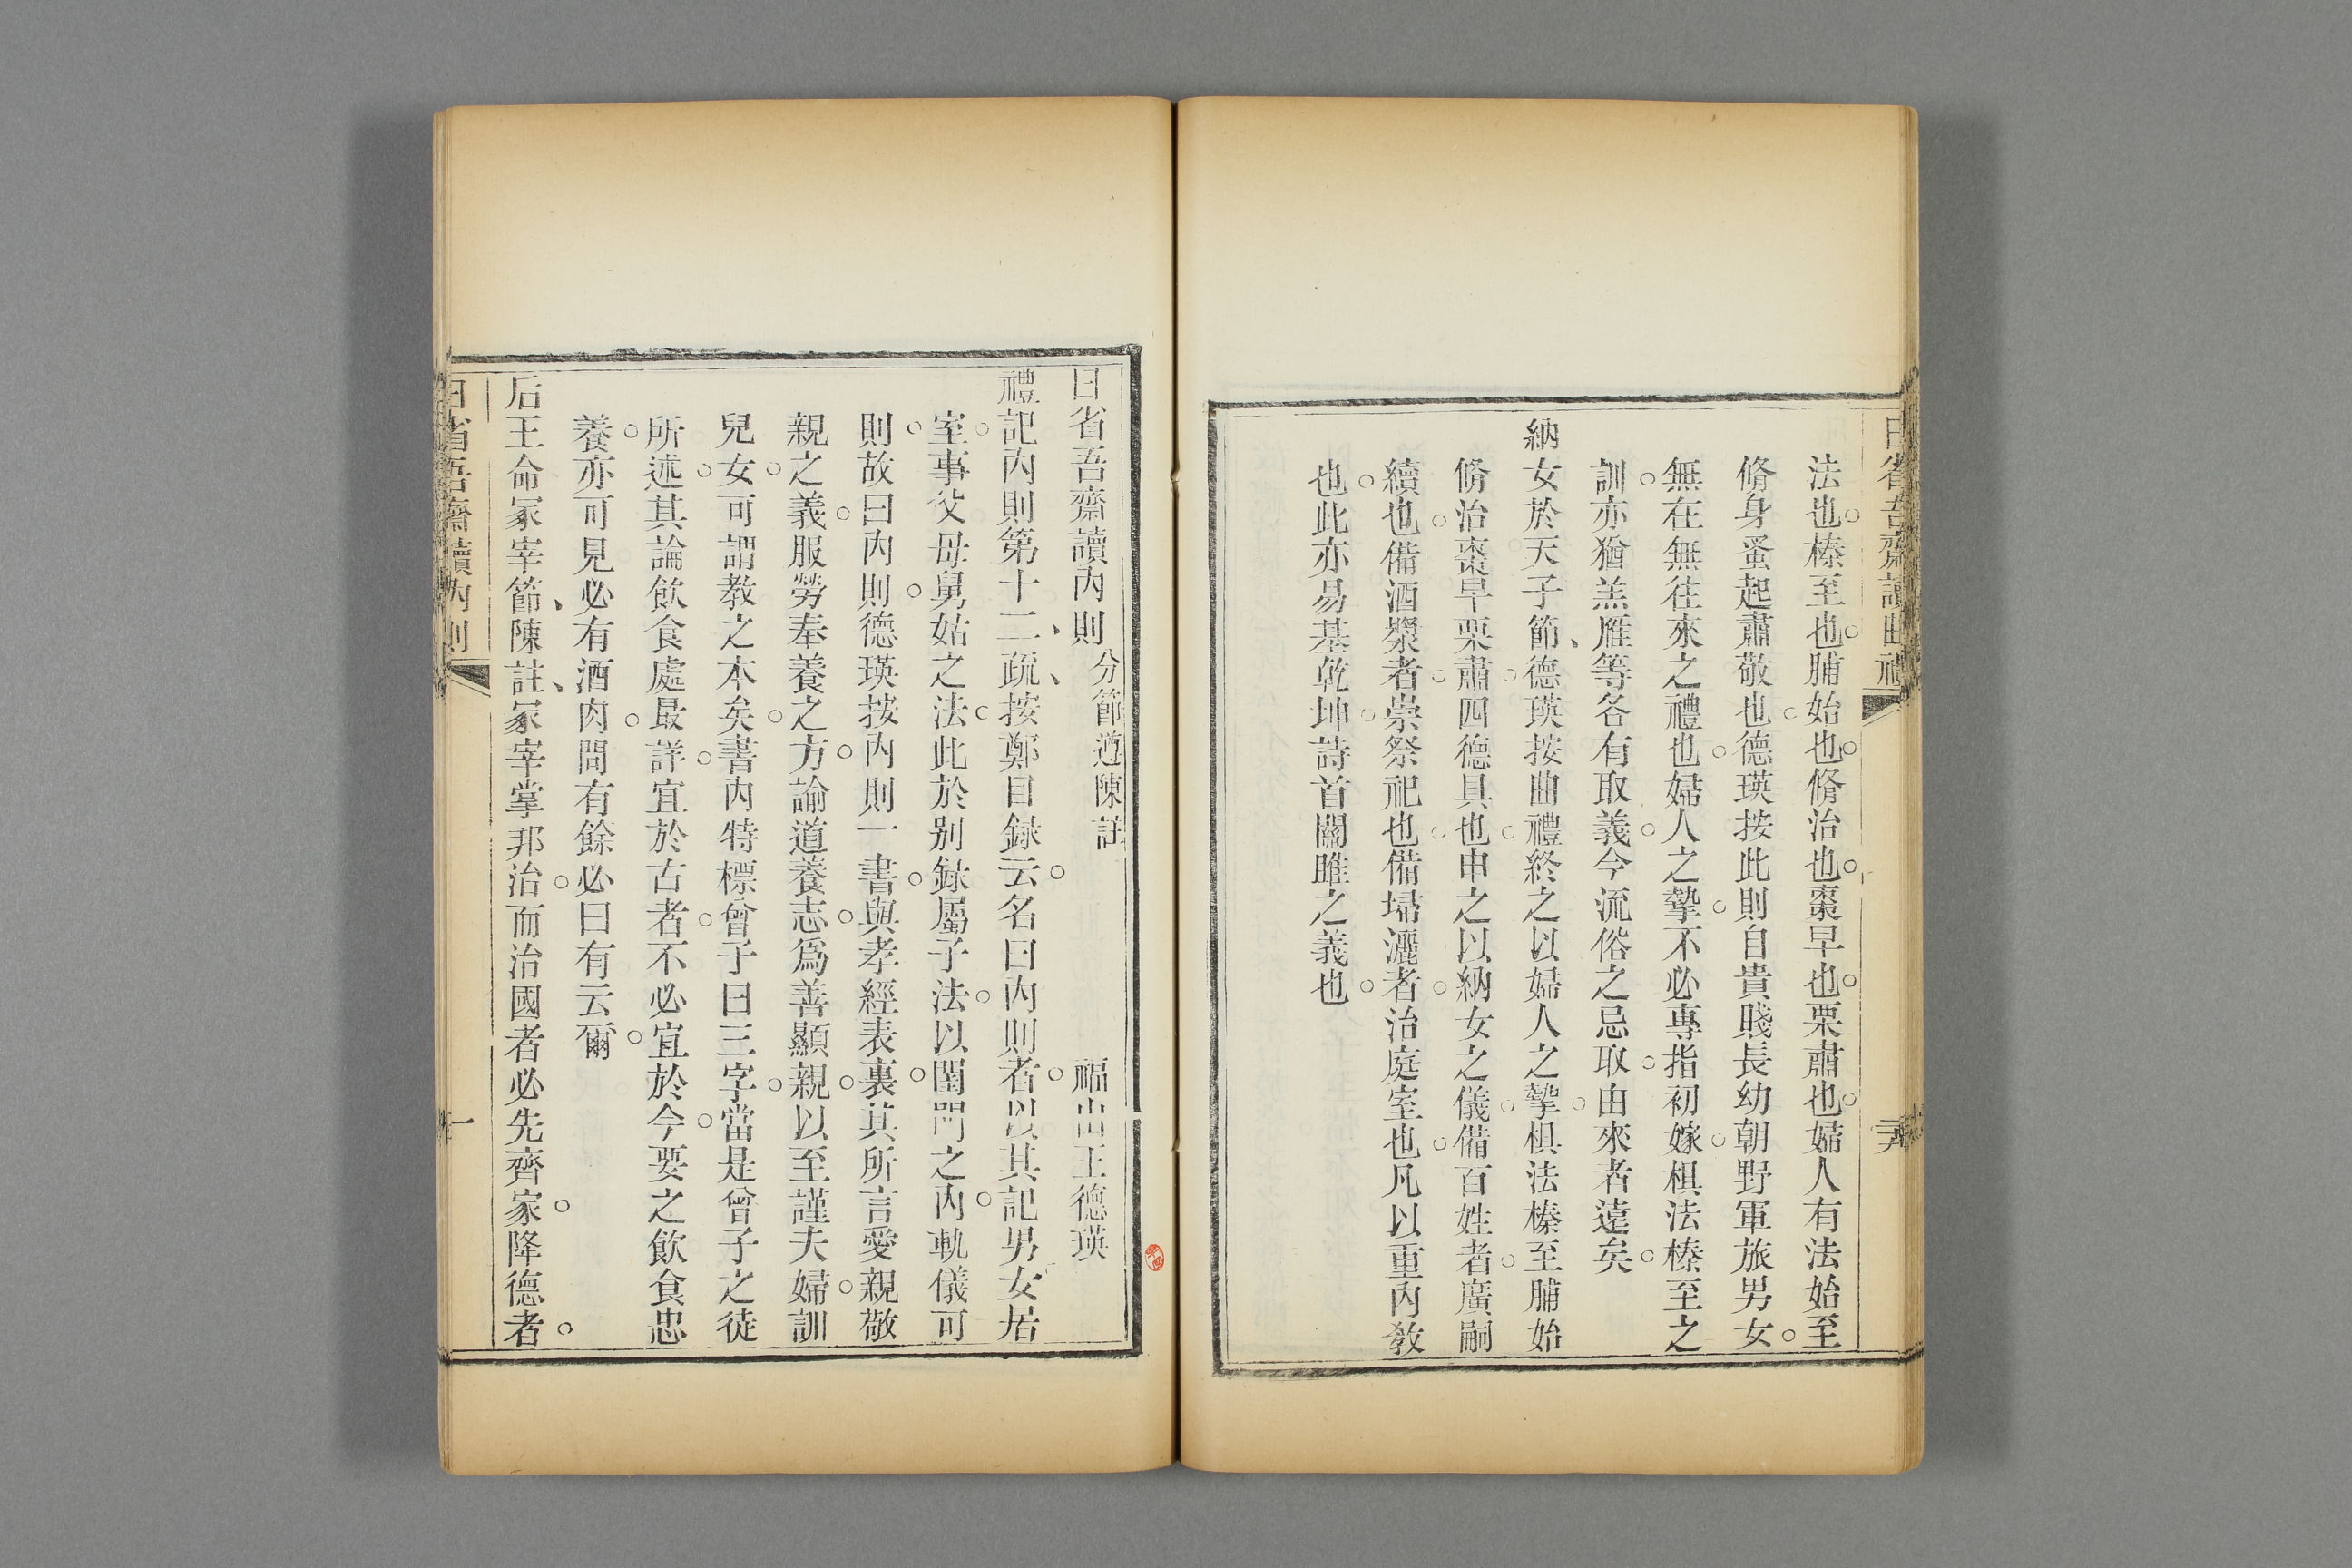 日省吾齋讀曲禮
法也榛至也脯始也脩治也棗早也栗肅也婦人有法始至
脩身蚤起肅敬也德瑛按此則自貴賤長幼朝野軍旅男女
無在無往來之禮也婦人之摯不必專指初嫁棋法榛至之
訓亦猶羔雁等各有取義今流俗之忌取由來者遠矣
納女於天子節德瑛按曲禮終之以婦人之摯棋法榛至脯始
脩治棗早栗肅四德具也申之以納女之儀備百姓者廣嗣
續也備酒漿者崇祭祀也備埽灑者治庭室也凡以重內教
也此亦易基乾坤詩首關雎之義也
日省吾齋讀內則 分節遵陳註 福山王德瑛
禮記內則第十二疏按鄭目録云名曰內則者以其記男女居
室事父母舅姑之法此於別録屬子法以閨門之內軌儀可
則故曰內則德瑛按內則一書與孝經表裏其所言愛親敬
親之義服勞奉養之方論道養志爲善顯親以至謹夫婦訓
兒女可謂教之本矣書內特標曾子曰三字當是曾子之徒
所述其論飲食處最詳宜於古者不必宜於今要之飲食忠
養亦可見必有酒肉間有餘必曰有云爾
后王命冢宰節陳註冢宰掌邦治而治國者必先齊家降德者
日省吾齋讀內則 一